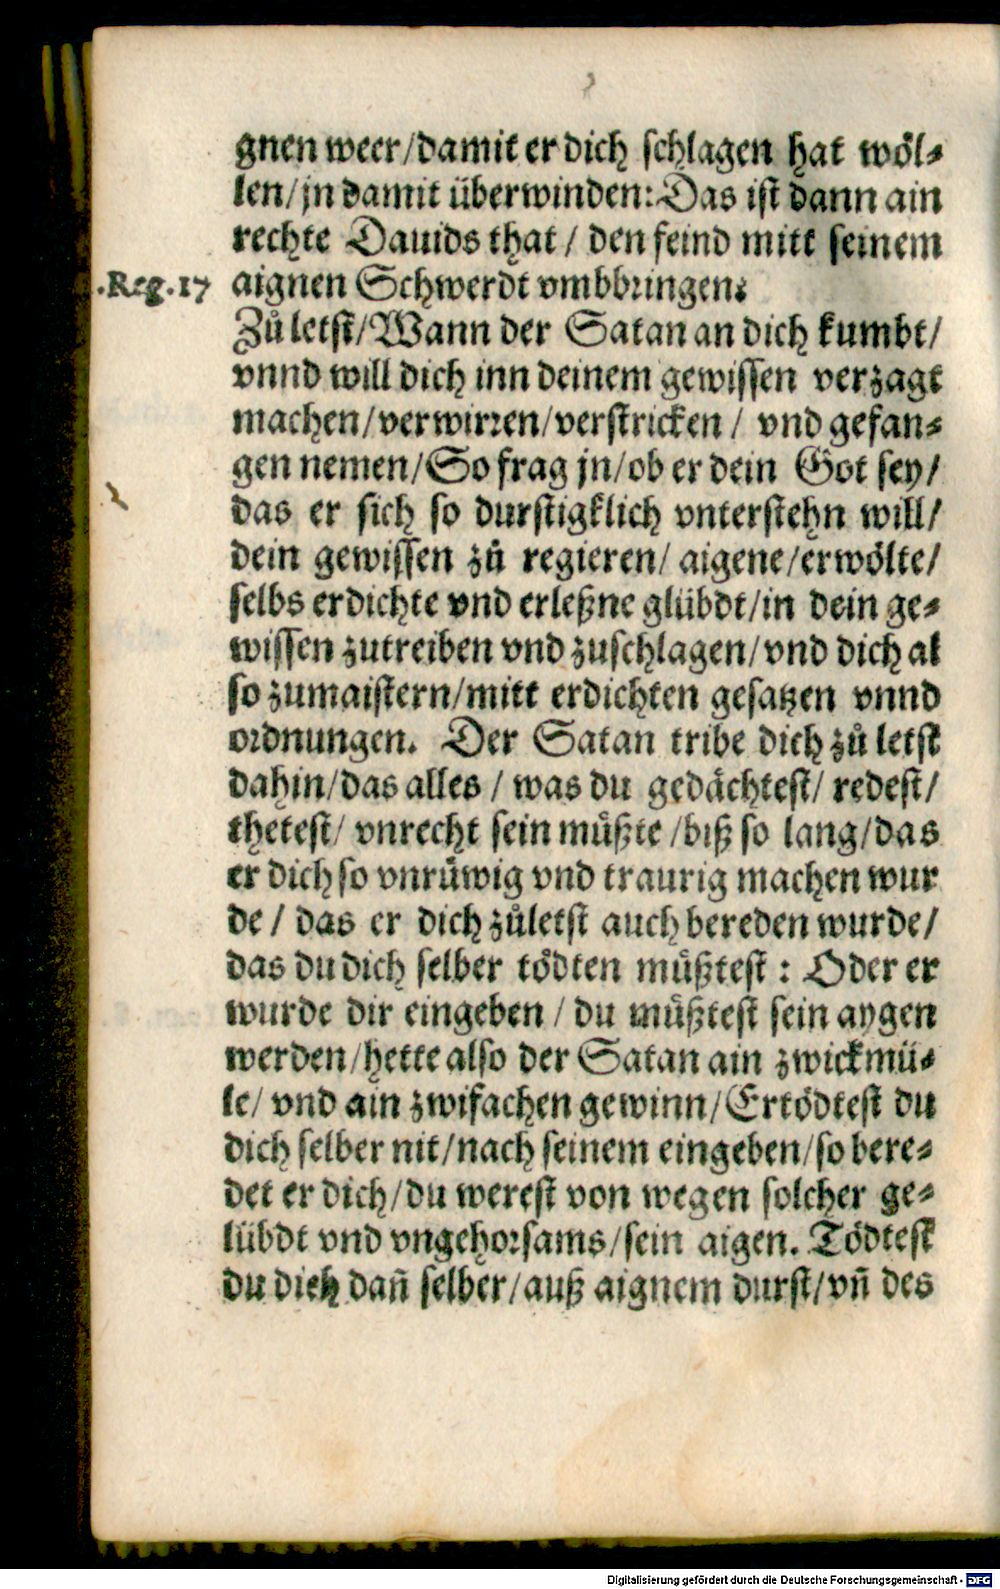 gnen weer/damit er dich schlagen hat wöl⸗
len/jn damit überwinden: Das ist dann ain
rechte Dauids that / den feind mitt seinem
.Reg.17 aignen Schwerdt vmbbringen:
Zů letst/Wann der Satan an dich kumbt/
vnnd will dich inn deinem gewissen verzagt
machen/verwirren/verstricken / vnd gefan⸗
gen nemen/So frag jn/ob er dein Got sey/
das er sich so durstigklich vnterstehn will/
dein gewissen zů regieren/ aigene/erwölte/
selbs erdichte vnd erleßne glübdt/in dein ge⸗
wissen zutreiben vnd zuschlagen/vnd dich al
so zumaistern/mitt erdichten gesatzen vnnd
ordnungen. Der Satan tribe dich zů letst
dahin/das alles / was du gedächtest/ redest/
thetest/ vnrecht sein müßte /biß so lang/das
er dich so vnrüwig vnd traurig machen wur
de / das er dich zůletst auch bereden wurde/
das du dich selber tödten müßtest : Oder er
wurde dir eingeben / du müßtest sein aygen
werden/hette also der Satan ain zwickmü⸗
le/ vnd ain zwifachen gewinn/Ertödtest du
dich selber nit/nach seinem eingeben/so bere⸗
det er dich/du werest von wegen solcher ge⸗
lübdt vnd vngehorsams/sein aigen. Tödtest
du dich dañ selber/auß aignem durst/vñ des
Digitalisierung gefördert durch die Deutsche Forschungsgemeinschaft - DFG